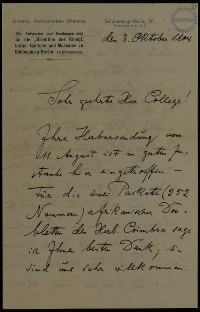 Königl. Botanisches Museum.
Schöneberg-Berlin W.,
Alle Antworten und Sendungen sind
an die „Direktion des Königl.
botan. Gartens und Museums zu
Schöneberg-Berlin"
den 3. Oktober 1904
Sehr geehrter Herr College!
Ihre Herbarsendung vom
11. August ist in gutem Zu-
stande hier eingetroffen. —
Für die zwei Pakete (252
Nummern) afrikanischer Dou-
bletten des Herb. Coimbra sage
ich Ihnen besten Dank; sie
sind uns sehr willkommen.